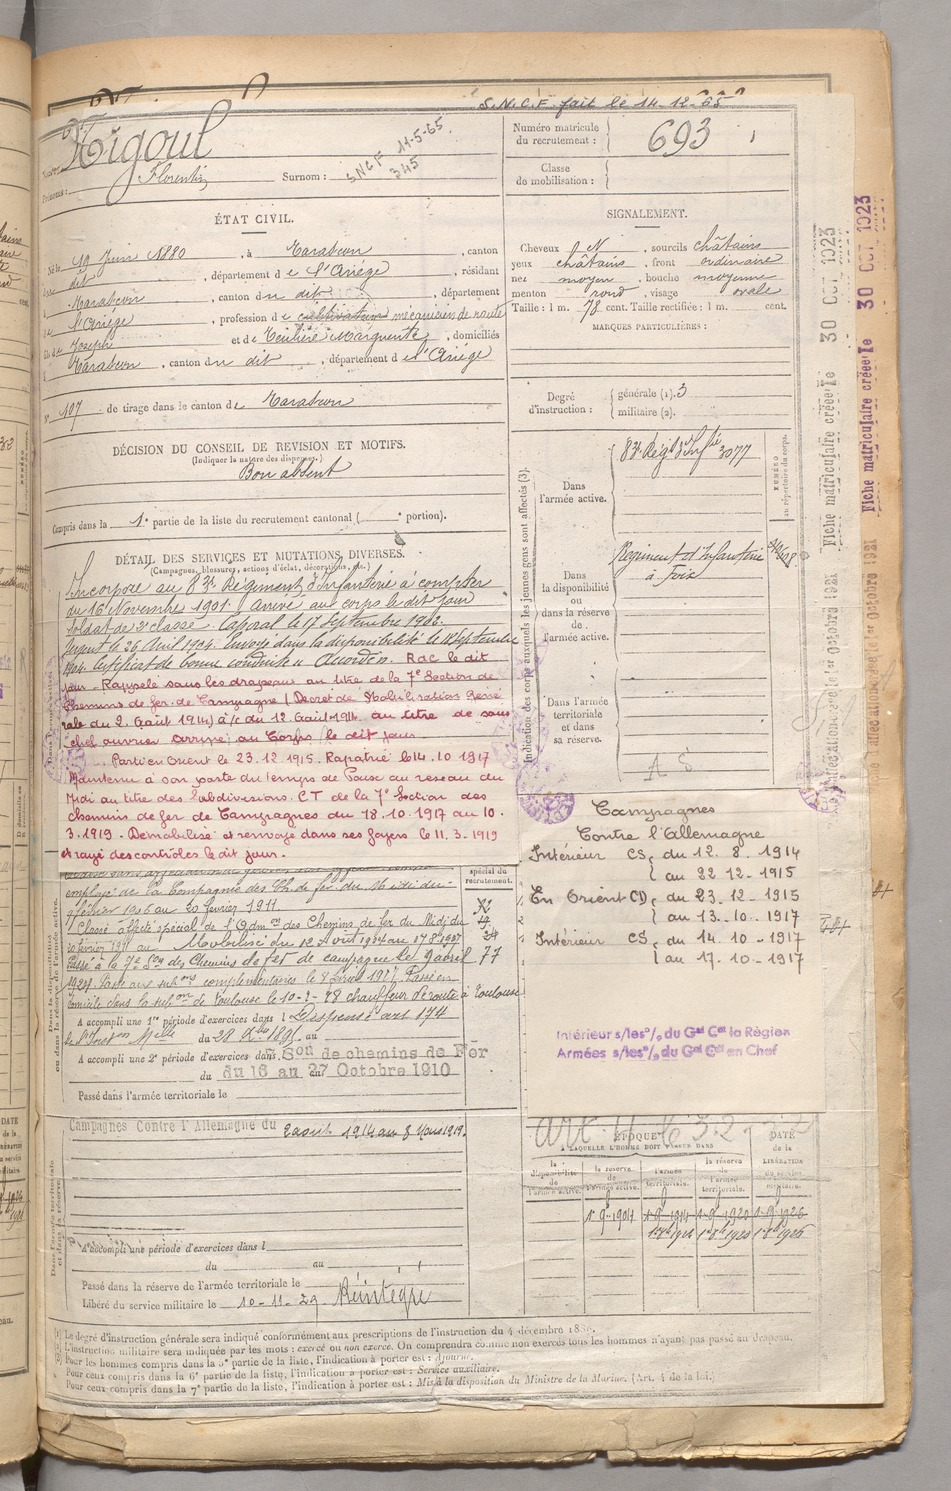 S.N.C.F. fait le 14-12-65
Rigoul
Prénoms : Florentin Surnom :
SNCF 11-5-65
345
Numéro matricule du recrutement : 693
Classe de mobilisation :
ÉTAT CIVIL.
Né le 19 Juin 1880, à Tarascon, canton
dudit, département de l'Ariège, résidant
à Tarascon, canton dudit, département
de l'Ariège, profession de cultivateur mécanicien de route
fils de Joseph et de Teulière Marguerite, domiciliés
à Tarascon, canton du dit, département de l'Ariège
N° 107 de tirage dans le canton de Tarascon
SIGNALEMENT.
Cheveux N, sourcils châtains
yeux châtains, front ordinaire
nez moyen, bouche moyenne
menton rond, visage ovale
Taille : 1 m. 78 cent. Taille rectifiée : 1 m. cent.
MARQUES PARTICULIÈRES :
Degré d'instruction : générale (1). 3
militaire (2).
DÉCISION DU CONSEIL DE REVISION ET MOTIFS.
(Indiquer la nature des dispenses.)
Bon absent
Compris dans la 1e partie de la liste du recrutement cantonal ( e portion).
Indication des corps auxquels les jeunes gens sont affectés (3).
NUMÉRO au répertoire du corps.
Dans l'armée active.
83e Régt d'Infie 3077
Dans la disponibilité ou dans la réserve de l'armée active.
Régiment d'Infanterie
à Foix
Dans l'armée territoriale et dans sa réserve.
A S
DÉTAIL DES SERVICES ET MUTATIONS DIVERSES.
(Campagnes, blessures, actions d'éclat, décorations, etc.)
Incorporé au 83e Régiment d'Infanterie à compter
du 16 Novembre 1901. Arrivé au corps le dit jour
soldat de 2e classe. Caporal le 17 septembre 1902.
Sergent le 26 Avril 1904. Envoyé dans la disponibilité le 18 septembre
1904. Certificat de bonne conduite « Accordé ». RAC le dit
jour. Rappelé sous les drapeaux au titre de la 7e Section de
Chemins de fer de Campagne (Décret de Mobilisation Géné
rale du 2. Août 1914) à/c du 12 Août 1914. au titre de sous
chef ouvrier arrivé au Corps le dit jour
Parti en Orient le 23.12.1915. Rapatrié le 14.10.1917
Maintenu à son poste du temps de Paix au réseau du
Midi au titre des Subdivisions. CT de la 7e Section des
chemins de fer de Campagnes du 18.10.1917 au 10.
3.1919. Démobilisé et renvoyé dans ses foyers le 11.3.1919
et rayé des contrôles le dit jour.
employé de la Compagnie des Ch. de fer du Midi du
9 février 1906 au 20 février 1911.
Classé affecté spécial de l'Adm on des Chemins de fer du Midi du
20 février 1911 au Mobilisé du 12 août 1914 au
Passé à la 7e Son des Chemins de fer de campagne le 9 avril
1924. Passé aux subons complémentaires le 8 février 1927. Passé en
domicile dans la subon de Toulouse le 10-2-28 chauffeur de route à Toulouse
spécial du recrutement.
77
A accompli une 1re période d'exercices dans l Dispensé art 174
du 28 Xbre au
A accompli une 2e période d'exercices dans 7 Son de chemins de Fer
du du 16 au 27 Octobre 1910
Passé dans l'armée territoriale le
Campagnes Contre l'Allemagne du 2 août 1914 au 8 Mars 1919.
A accompli une période d'exercices dans l
du au
Passé dans la réserve de l'armée territoriale le
Libéré du service militaire le 10-11-29 Réintégré
Campagnes
Contre l'Allemagne
Intérieur CS, du 12.8.1914
au 22 12-1915
En Orient CD, du 23-12-1915
au 13-10-1917
Intérieur CS, du 14.10-1917
au 17-10-1917
Intérieur s/les o/o du Gal Ct la Région
Armées s/les o/o du Gal Ct en Chef
ÉPOQUE
À LAQUELLE L'HOMME DOIT PASSER DANS
la disponibilité de l'armée active.
la réserve de l'armée active.
l'armée territoriale.
la réserve de l'armée territoriale.
DATE de la LIBÉRATION du service militaire.
1-9-1904 1-9-1914 1-9-1920 1-9-1926
(1) Le degré d'instruction générale sera indiqué conformément aux prescriptions de l'instruction du 4 décembre
(2) L'instruction militaire sera indiquée par les mots : exercé ou non exercé. On comprendra comme non exercés tous les hommes n'ayant pas passé au drapeau.
(3) Pour les hommes compris dans la 5e partie de la liste, l'indication à porter est : Ajourné.
Pour ceux compris dans la 6e partie de la liste, l'indication à porter est : Service auxiliaire.
Pour ceux compris dans la 7e partie de la liste, l'indication à porter est : Mis à la disposition du Ministre de la Marine. (Art. 4 de la loi.)
Fiche matriculaire créée le 30 OCT 1923
Fiche matriculaire créée le 30 OCT 1923